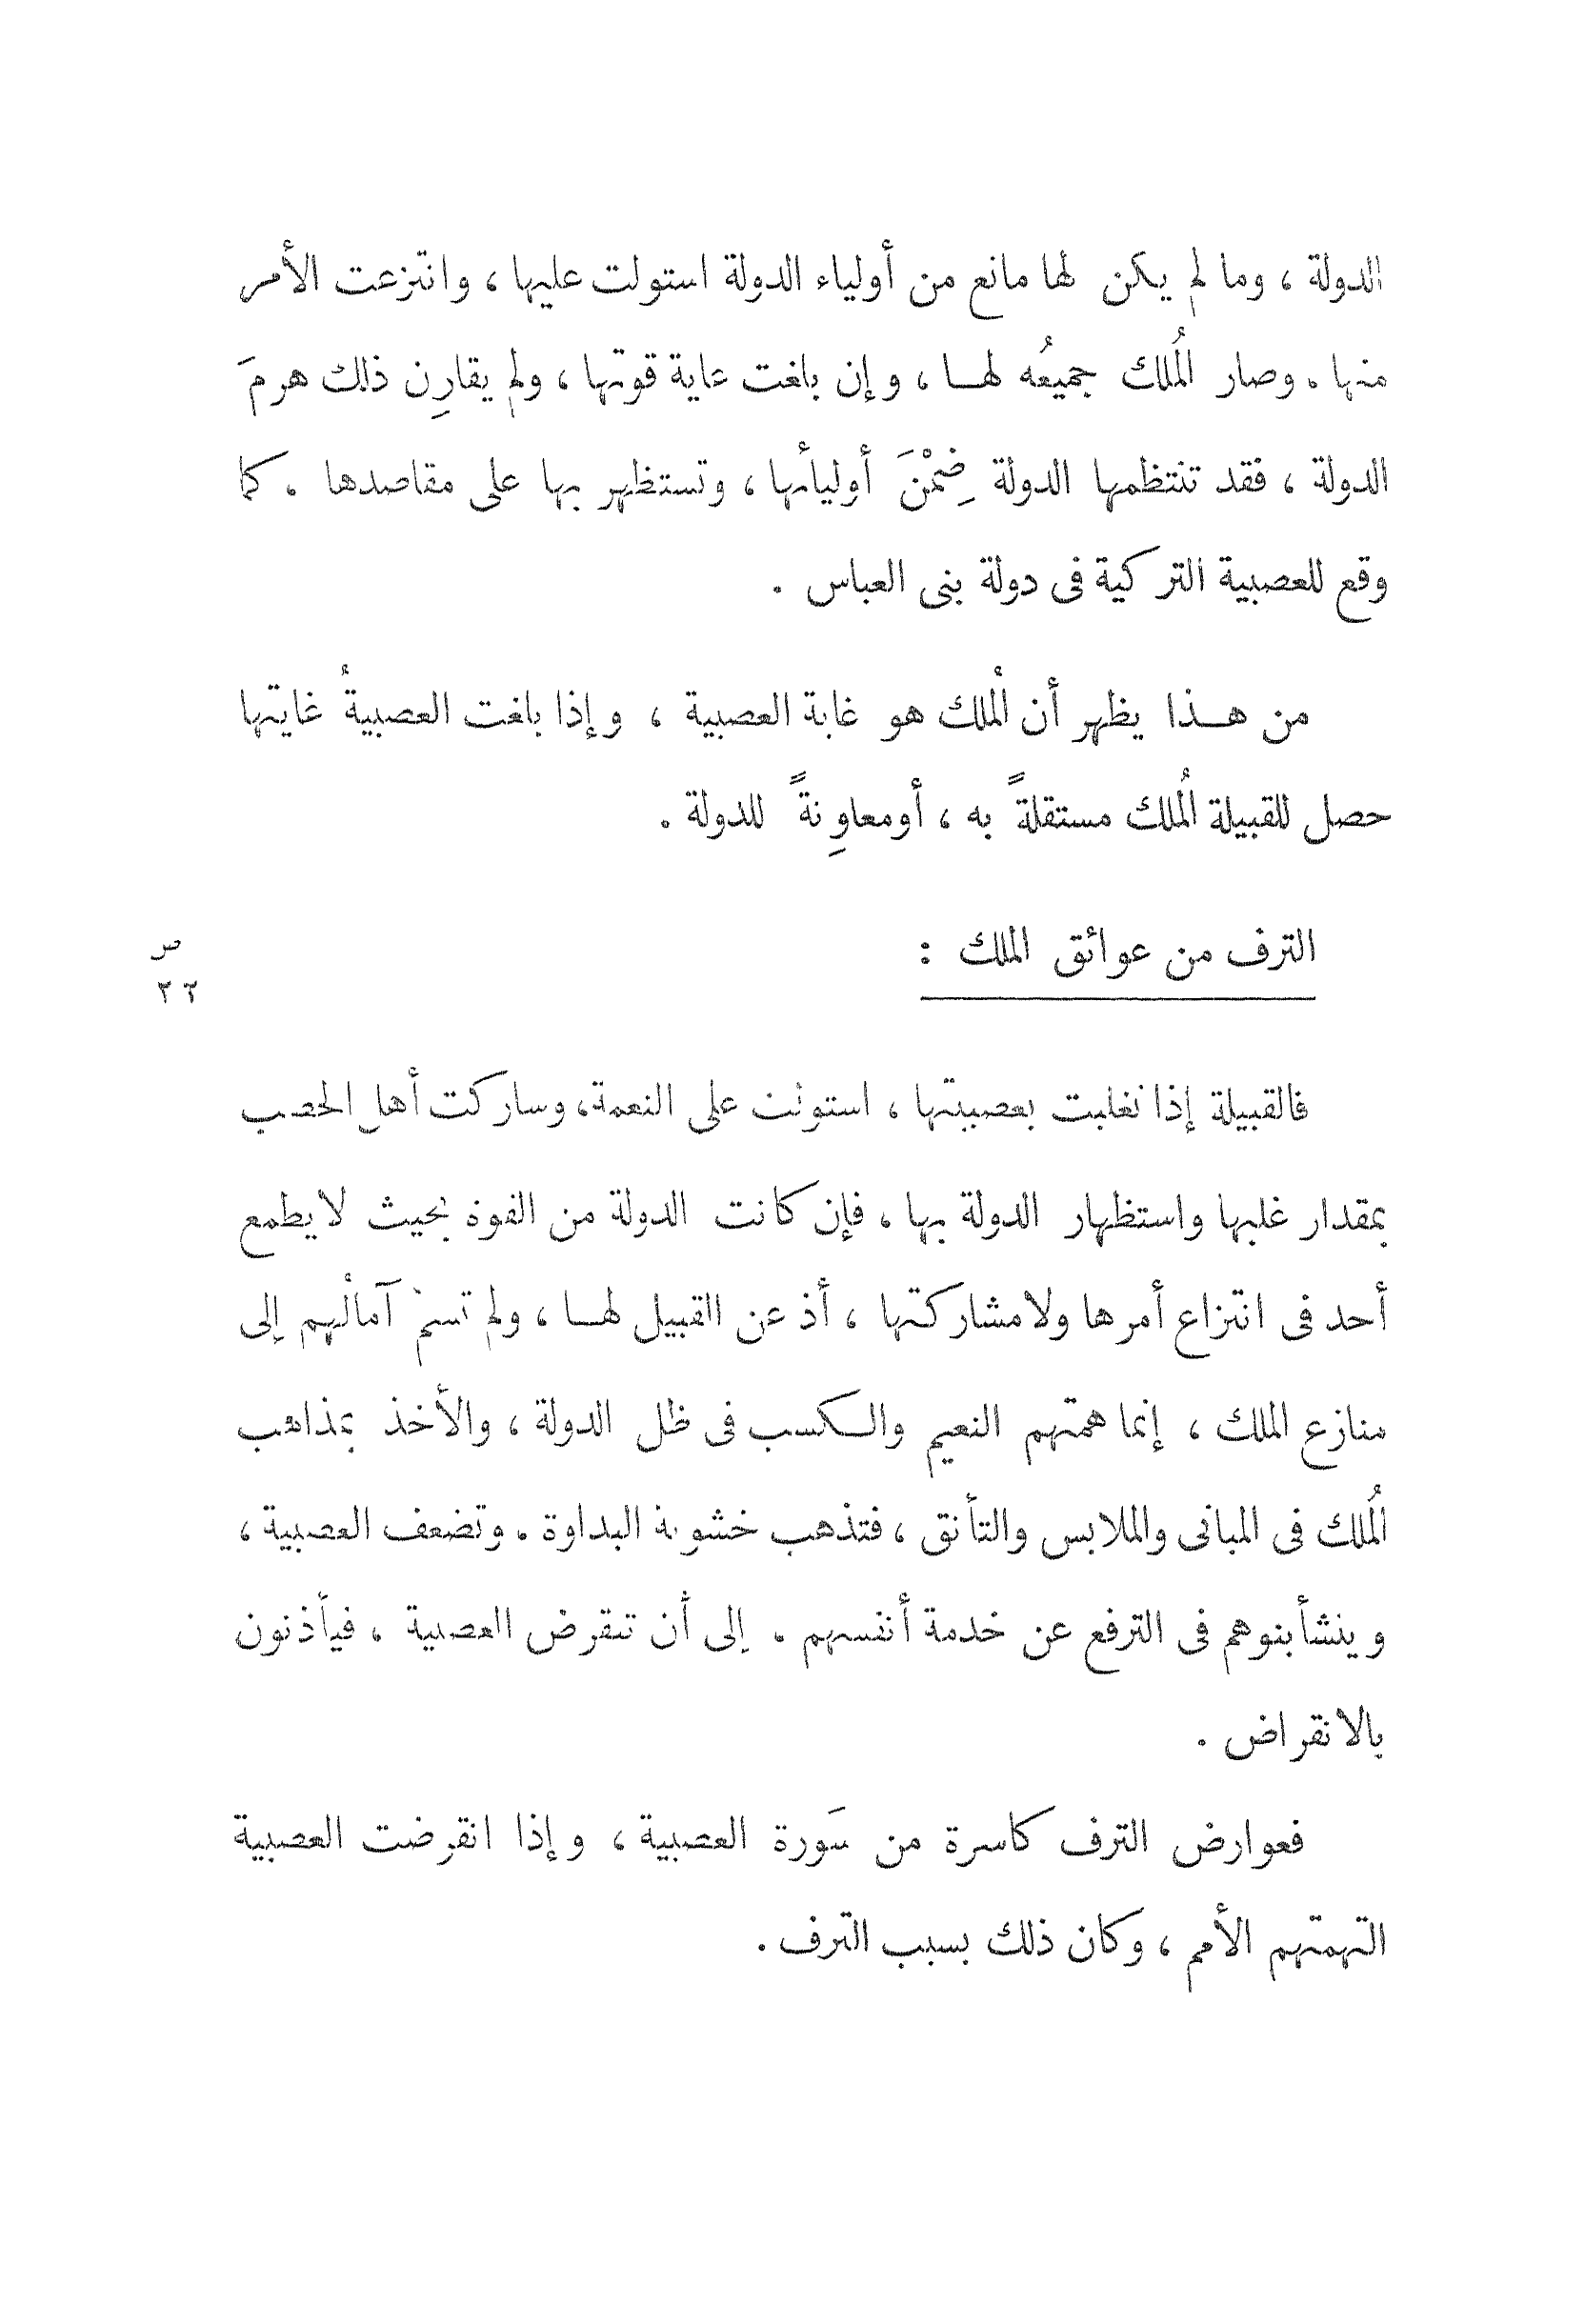 الدولة ، وما لم يكن لها مانع من أولياء الدولة استولت عليها ، وانتزعت الأمر
منها . وصار المُلك جميعُه لهـا ، وإن بلغت غاية قوتها ، ولم يقارِن ذلك هرمَ
الدولة ، فقد تنتظمها الدولة ضِمْنَ أوليائها ، وتستظهر بها على مقاصدها . كما
وقع للعصبية التركية فى دولة بنى العباس .
من هـذا يظهر أن المُلك هو غاية العصبية ، وإذا بلغت العصبيةُ غايتها
حصل للقبيلة المُلك مستقلةً به ، أو معاوِنةً للدولة .
الترف من عوائق الملك :
ص
٢٢
فالقبيلة إذا تغلبت بعصبيتها ، استولت على النعمة، وشاركت أهل الخصب
بمقدار غلبها واستظهار الدولة بها ، فإن كانت الدولة من القوة بحيث لا يطمع
أحد فى انتزاع أمرها ولا مشاركتها ، أذعن القبيل لهـا ، ولم تسمُ آمالُهم إلى
منازع الملك ، إنما همتهم النعيم والـكسب فى ظل الدولة ، والأخذ بمذاهب
المُلك فى المبانى والملابس والتأنق ، فتذهب خشونة البداوة . وتضعف العصبية ،
وينشأ بنوهم فى الترفع عن خدمة أنفسهم . إلى أن تنقرض العصبية ، فيأذنون
بالانقراض .
فعوارض الترف كاسرة من سَورة العصبية ، وإذا انقرضت العصبية
التهمتهم الأمم ، وكان ذلك بسبب الترف .